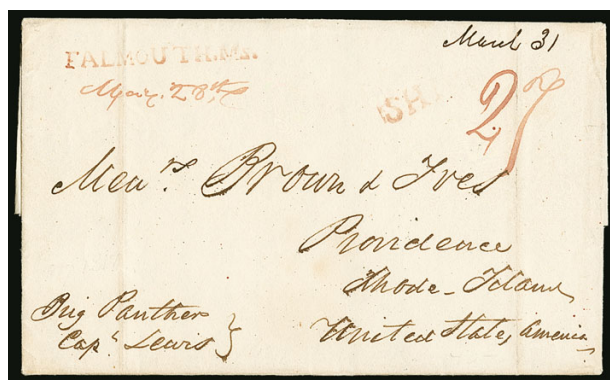 March 31
FALMOUTH.Ms.
Mar. 28th
SH
27
Messrs. Brown & Ives
Providence
Rhode-Island
United States, America
Brig Panther
Capt. Lewis